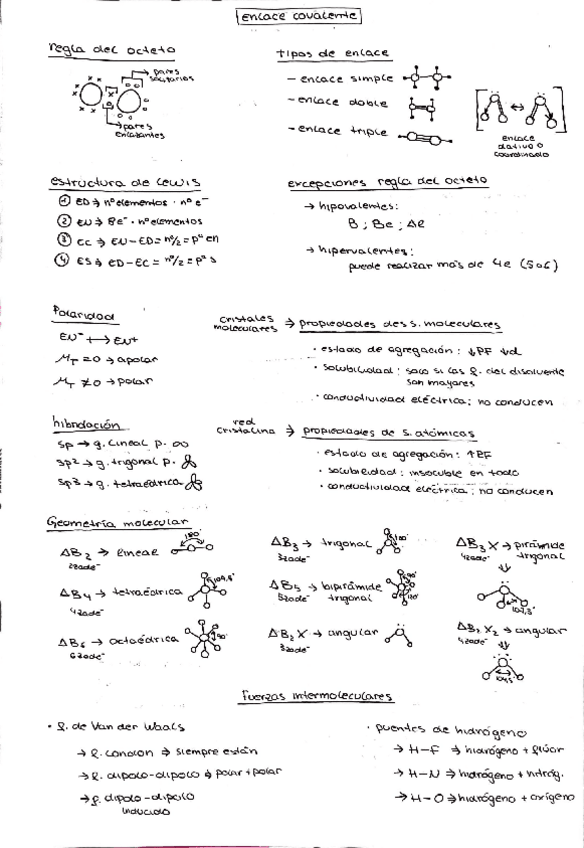 enlace covalente
regla del octeto
pares solitarios
pares enlazantes
tipos de enlace
- enlace simple
- enlace doble
- enlace triple
enlace dativo o coordinado
estructura de Lewis
① ED → nº elementos · nº e⁻
② EN → 8e⁻ · nº elementos
③ EC → EN - ED = nº/2 = pᵃ en
④ ES → ED - EC = nº/2 = pᵃ s
excepciones regla del octeto
→ hipovalentes:
B ; Be ; Al
→ hipervalentes:
puede realizar más de 4e (5 o 6)
Polaridad
EN⁻ ⟼ EN⁺
μT = 0 → apolar
μT ≠ 0 → polar
cristales moleculares ⇒ propiedades de s. moleculares
· estado de agregación: ↓PF ↓d
· solubilidad: solo si las f. del disolvente
son mayores
· conductividad eléctrica: no conducen
hibridación
sp → g. lineal p. ∞
sp2 → g. trigonal p.
sp3 → g. tetraédrica
red cristalina ⇒ propiedades de s. atómicas
· estado de agregación: ↑PF
· solubilidad: insoluble en todo
· conductividad eléctrica: no conducen
Geometría molecular
AB2 → lineal 180
2zode⁻
AB3 → trigonal 120°
3zode⁻
AB3X → pirámide trigonal
4zode⁻
107,3°
AB4 → tetraédrica 109,5°
4zode⁻
AB5 → bipirámide trigonal 90° 120°
5zode⁻
AB6 → octaédrica 90°
6zode⁻
AB2X → angular
3zode⁻
AB2X2 → angular
4zode⁻
104,5°
Fuerzas intermoleculares
· f. de Van der Waals
→ f. london ⇒ siempre están
→ f. dipolo-dipolo ⇒ polar + polar
→ f. dipolo-dipolo
inducido
· puentes de hidrógeno
→ H-F ⇒ hidrógeno + flúor
→ H-N ⇒ hidrógeno + nitróg.
→ H-O ⇒ hidrógeno + oxígeno